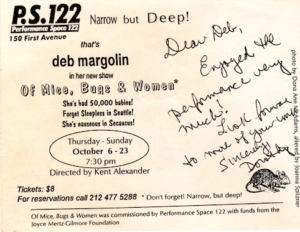 P.S.122
Narrow but Deep!
Performance Space 122
150 First Avenue
that's
deb margolin
in her new show
Of Mice, Bugs & Women*
She's had 50,000 babies!
Forget Sleepless in Seattle!
She's nauseous in Secaucus!
Thursday - Sunday
October 6 - 23
7:30 pm
Directed by Kent Alexander
Tickets: $8
For reservations call 212 477 5288
* Don't forget! Narrow, but deep!
Of Mice, Bugs & Women was commissioned by Performance Space 122 with funds from the
Joyce Mertz-Gilmore Foundation
Dear Deb,
Enjoyed the
performance very
much!
Look forward
to more of your work
Sincerely
photo by Dona Ann McAdams, altered by